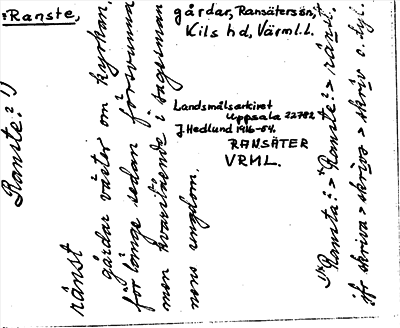 :Ranste,
gårdar, Ransäters sn,
Kils hd, Värml.l.
Landsmålsarkivet
Uppsala 22782
J. Hedlund 1916-54.
RANSÄTER
VRML.
Ranste? 1)
rånst
gårdar väster om kyrkan,
för länge sedan försvunna
men kvarstående i sagesman
nens ungdom.
1) *Ransta? > *Ranste? > rånst.
jfr skriva > skrivo > skriv o. dyl.